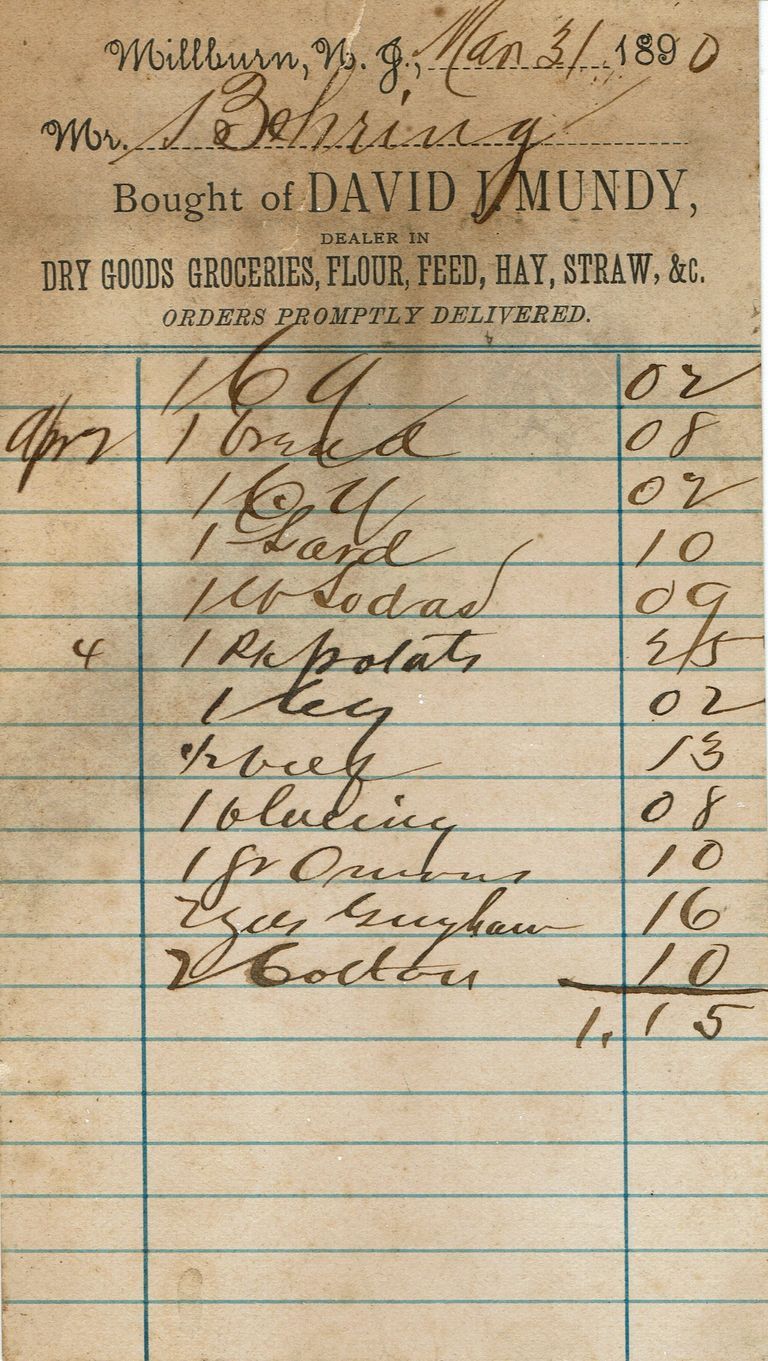 Millburn, N. J., Mar 31 1890
Mr. Behring
Bought of DAVID J. MUNDY,
DEALER IN
DRY GOODS GROCERIES, FLOUR, FEED, HAY, STRAW, &c.
ORDERS PROMPTLY DELIVERED.
1 Cy 02
Apr 2 1 bread 08
1 Cy 02
1 Lard 10
1 lb Sodas 09
4 1 Pk potats 25
1 Cy 02
1/2 13
1 blueing 08
1 Onions 10
2 yds Gingham 16
2 Cotton 10
1.15